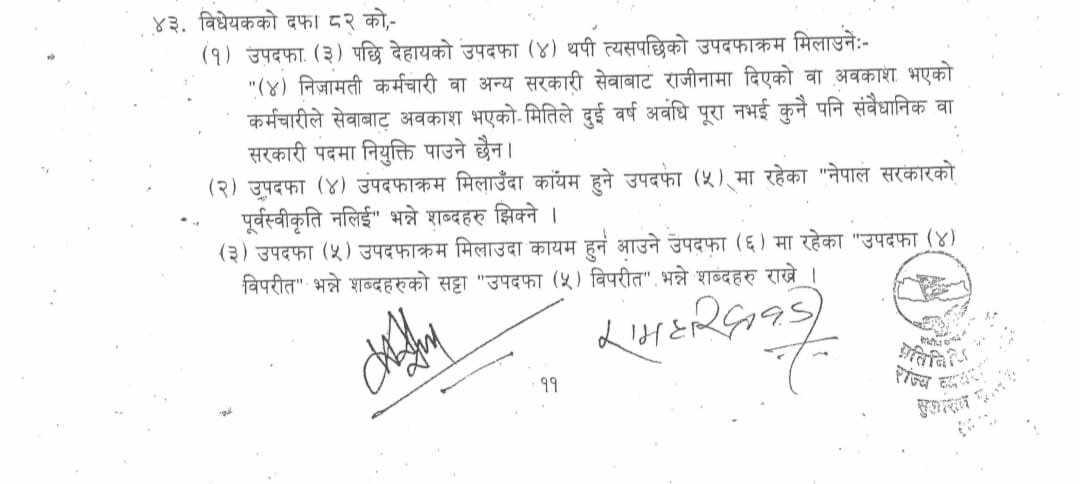 ४३. विधेयकको दफा ८२ को,-
(१) उपदफा (३) पछि देहायको उपदफा (४) थपी त्यसपछिको उपदफाक्रम मिलाउनेः-
"(४) निजामती कर्मचारी वा अन्य सरकारी सेवाबाट राजीनामा दिएको वा अवकाश भएको
कर्मचारीले सेवाबाट अवकाश भएको मितिले दुई वर्ष अवधि पूरा नभई कुनै पनि संवैधानिक वा
सरकारी पदमा नियुक्ति पाउने छैन।
(२) उपदफा (४) उपदफाक्रम मिलाउँदा कायम हुने उपदफा (५) मा रहेका "नेपाल सरकारको
पूर्वस्वीकृति नलिई" भन्ने शब्दहरु झिक्ने ।
(३) उपदफा (५) उपदफाक्रम मिलाउदा कायम हुन आउने उपदफा (६) मा रहेका "उपदफा (४)
विपरीत" भन्ने शब्दहरुको सट्टा "उपदफा (५) विपरीत" भन्ने शब्दहरु राखे ।
राज्य
११